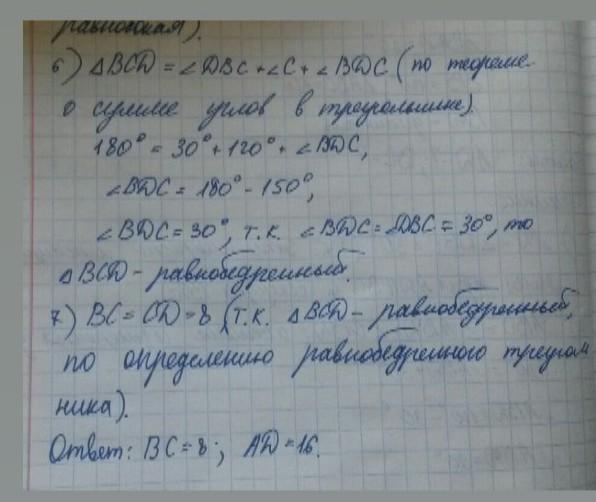 равнобокая).
6) △BCD = ∠DBC + ∠C + ∠BDC (по теореме
о сумме углов в треугольнике).
180° = 30° + 120° + ∠BDC,
∠BDC = 180° - 150°,
∠BDC = 30°, т.к. ∠BDC = ∠DBC = 30°, то
△BCD - равнобедренный.
7) BC = CD = 8 (т.к. △BCD - равнобедренный,
по определению равнобедренного треугол
ника).
Ответ: BC = 8; AD = 16.